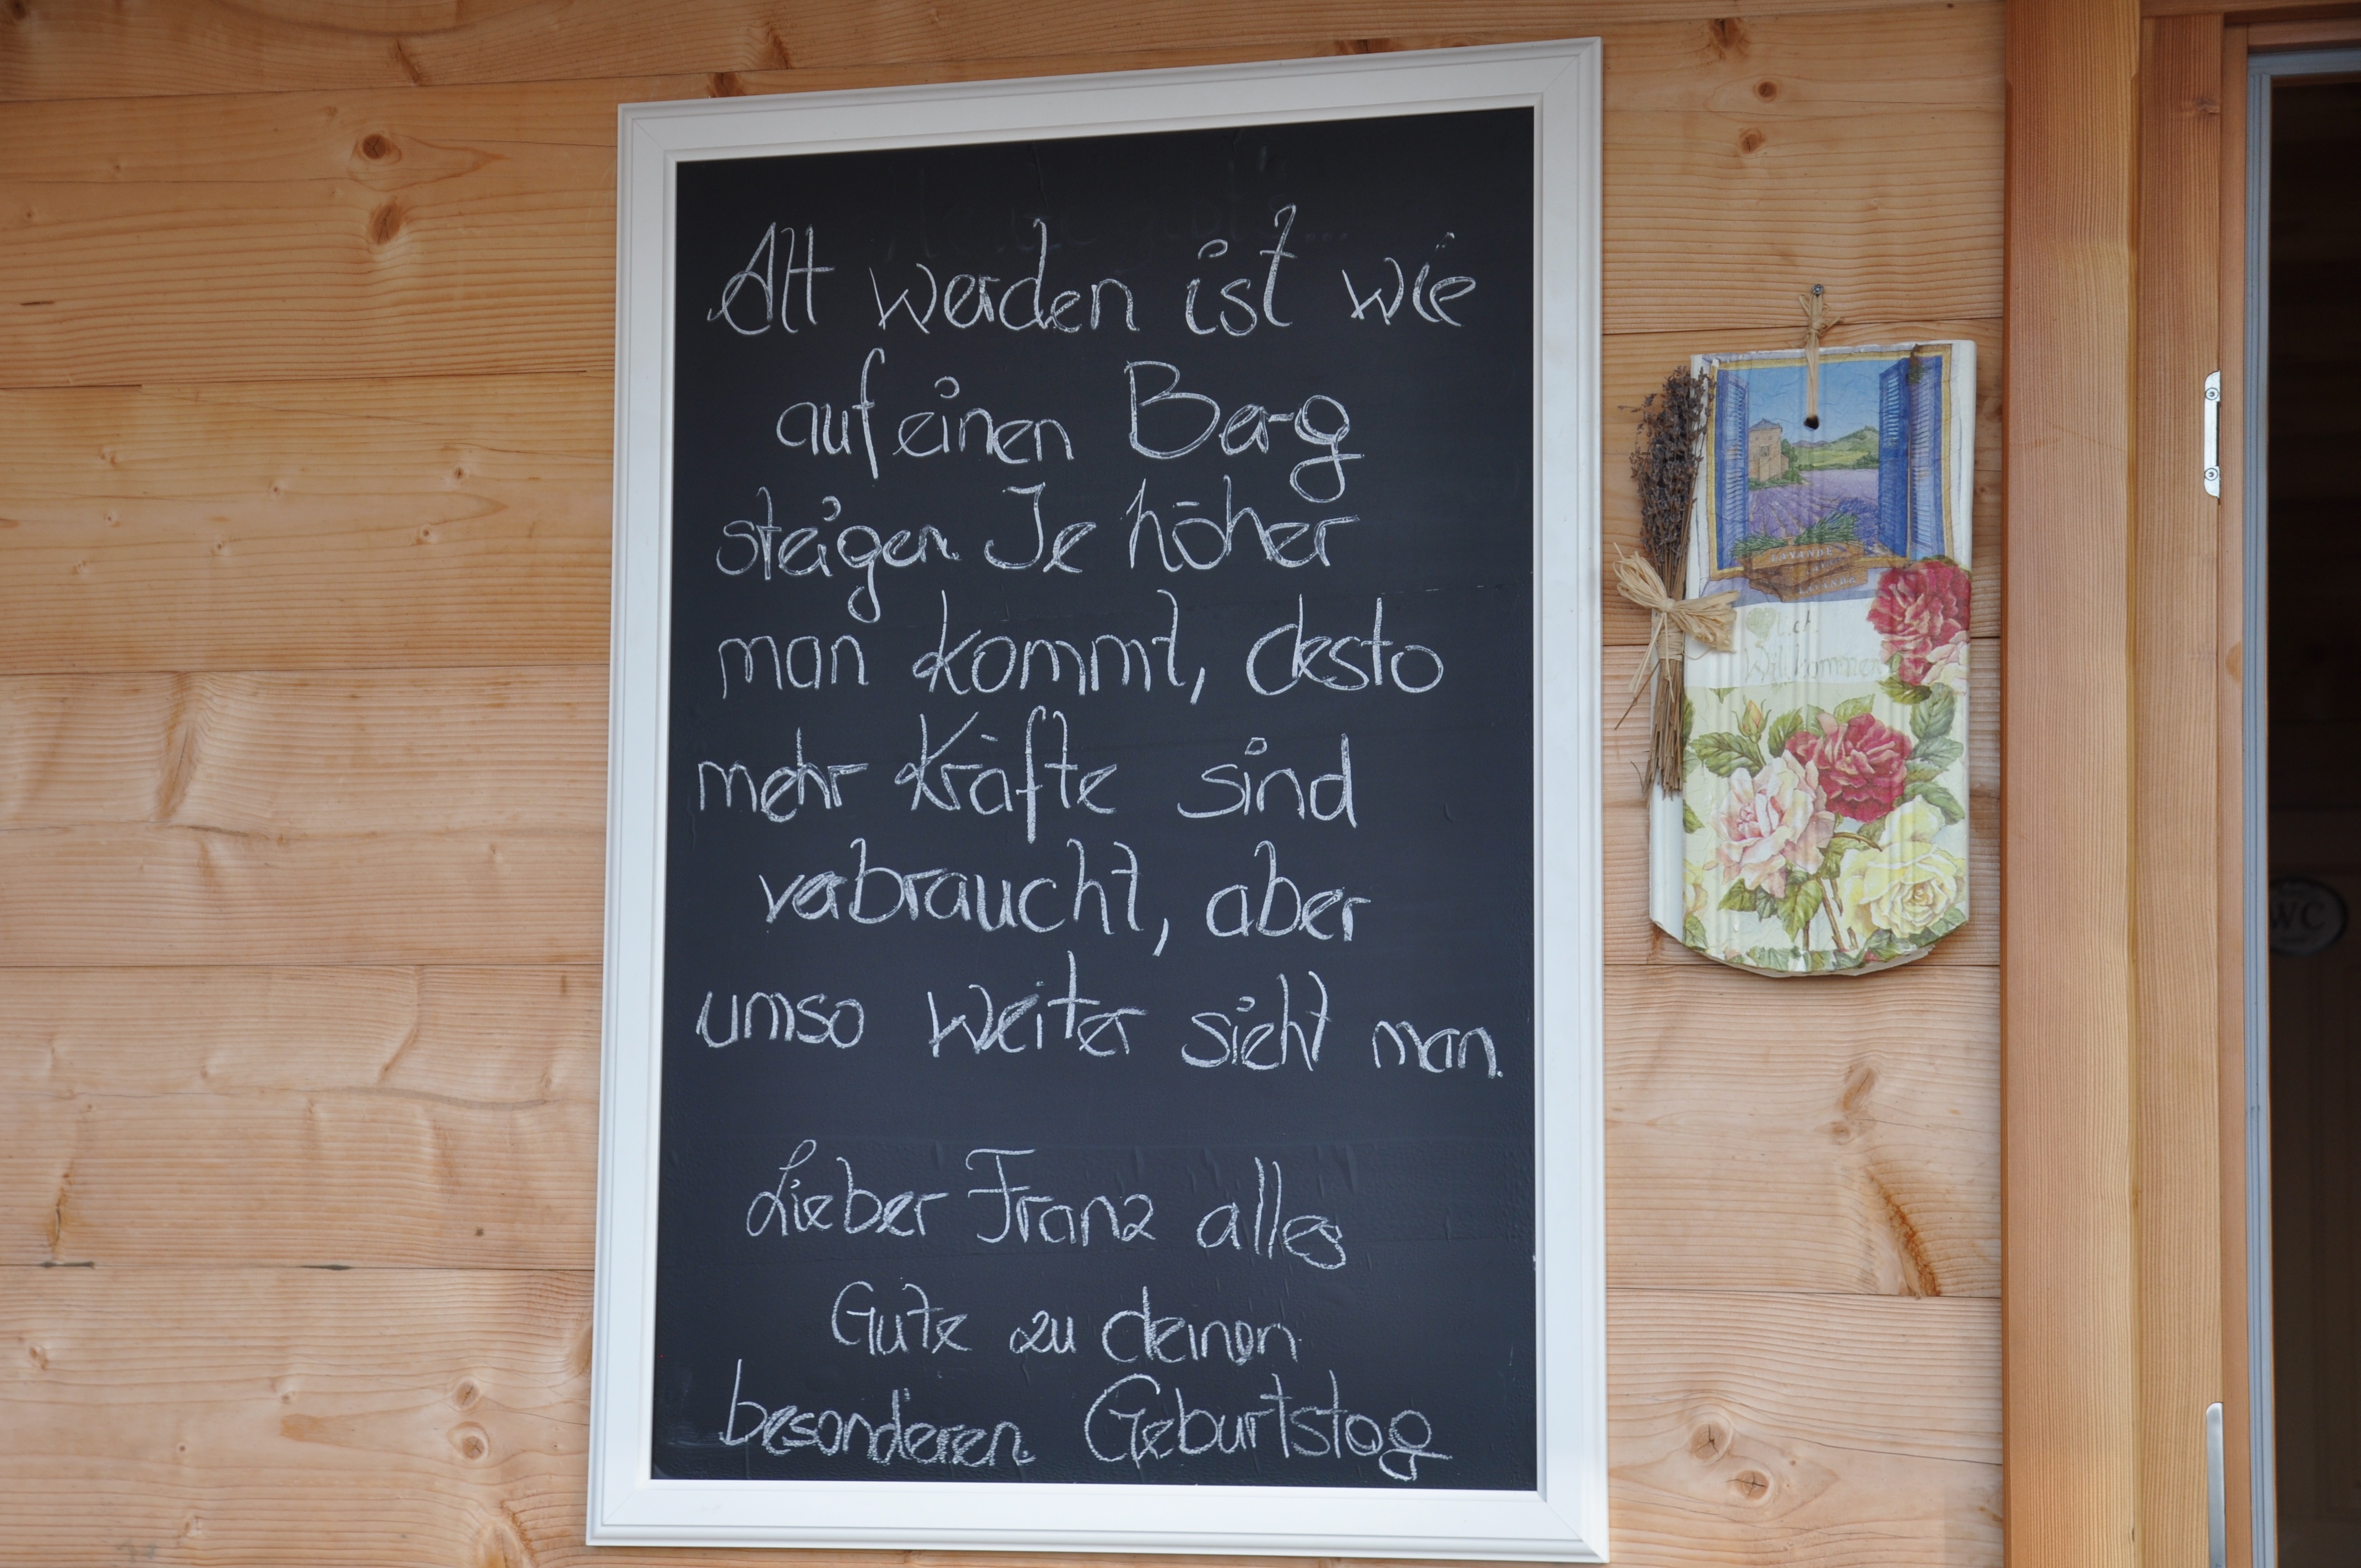 Alt werden ist wie
auf einen Berg
steigen. Je höher
man kommt, desto
mehr Kräfte sind
verbraucht, aber
umso weiter sieht man.
Lieber Franz alles
Gute zu deinen
besonderen Geburtstag
LAVANDE
Willkommen
WC